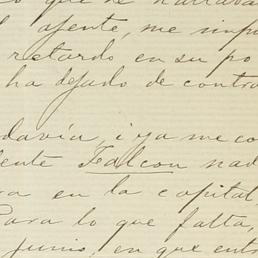 o que he narrava
l ajente, me imp
retardo en su po
ha dejado de contra
davía, i ya me co
dente Falcon nad
ra en la capital,
Para lo que falta,
junio, en que entr